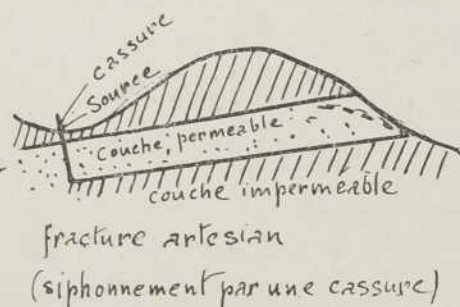 cassure
Source
couche, permeable
couche impermeable
fracture artesian
(siphonnement par une cassure)